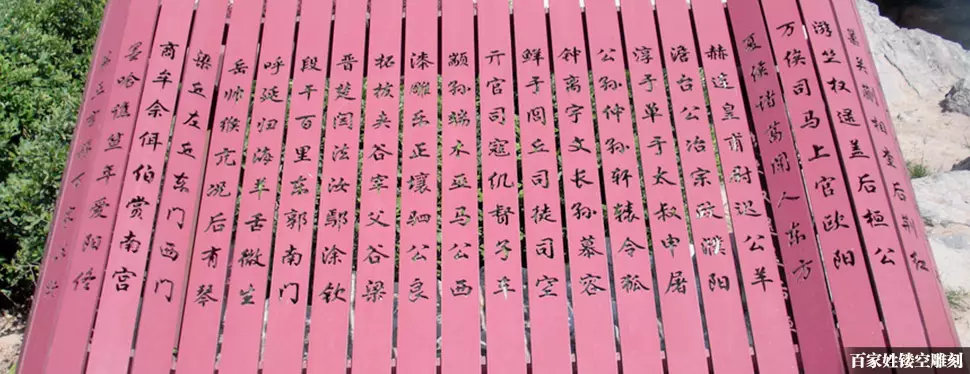 关蒯相查后荆红
游竺权逯盖后桓公
万俟司马上官欧阳
夏侯诸葛闻人东方
赫连皇甫尉迟公羊
澹台公冶宗政濮阳
淳于单于太叔申屠
公孙仲孙轩辕令狐
钟离宇文长孙慕容
鲜于闾丘司徒司空
亓官司寇仉督子车
颛孙端木巫马公西
漆雕乐正壤驷公良
拓拔夹谷宰父谷梁
晋楚闫法汝鄢涂钦
段干百里东郭南门
呼延归海羊舌微生
岳帅缑亢况后有琴
梁丘左丘东门西门
商牟余佴伯赏南宫
墨哈谯笪年爱阳佟
第五言福
百家姓镂空雕刻